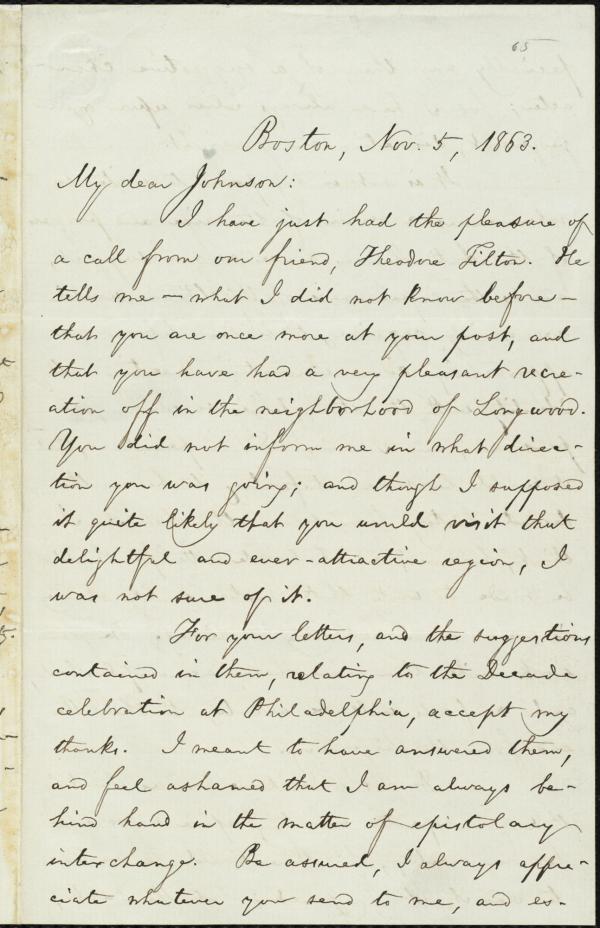 65
Boston, Nov. 5, 1863.
My dear Johnson:
I have just had the pleasure of
a call from our friend, Theodore Tilton. He
tells me — what I did not know before —
that you are once more at your post, and
that you have had a very pleasant recre-
ation off in the neighborhood of Longwood.
You did not inform me in what direc-
tion you was going; and though I supposed
it quite likely that you would visit that
delightful and ever-attractive region, I
was not sure of it.
For your letters, and the suggestions
contained in them, relating to the Decade
celebration at Philadelphia, accept my
thanks. I meant to have answered them,
and feel ashamed that I am always be-
hind hand in the matter of epistolary
interchange. Be assured, I always appre-
ciate whatever you send to me, and es-